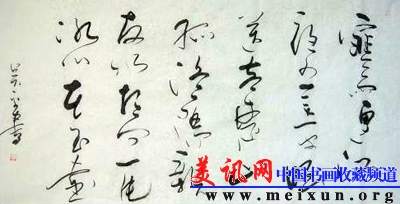 寒雨連江
夜入吴平明
送客楚山
孤洛陽親
友如相问一片
冰心在玉壶
美讯网
中国书画收藏频道
www.meixun.org